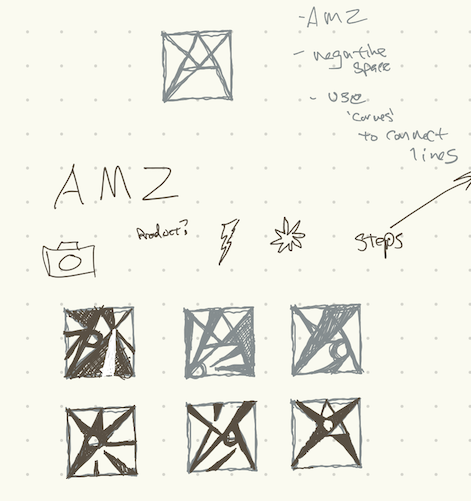 -AMZ
- negative
space
- use
'curves'
to connect
lines
AMZ
Product?
Steps